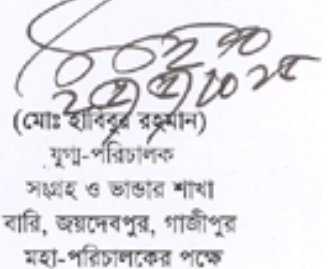 (মোঃ হাবিবুর রহমান)
যুগ্ম-পরিচালক
সংগ্রহ ও ভান্ডার শাখা
বারি, জয়দেবপুর, গাজীপুর
মহা-পরিচালকের পক্ষে